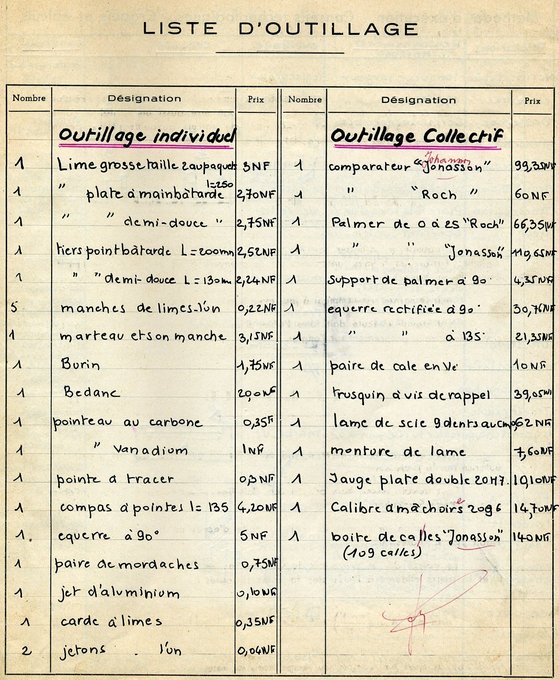 LISTE D'OUTILLAGE
Nombre Désignation Prix Nombre Désignation Prix
Outillage individuel
1 Lime grosse taille 2 au paquet 3NF
l=250
1 " plate à main bâtarde 2,70NF
1 " " demi-douce " 2,75NF
1 tiers point bâtarde L=200mm 2,52NF
1 " " demi-douce L=130mm 2,24NF
5 manches de limes l'un 0,22NF
1 marteau et son manche 3,15NF
1 Burin 1,75NF
1 Bedanc
1 pointeau au carbone 0,35F
1 " Vanadium 1NF
1 pointe a tracer
1 compas à pointes l=135 4,20NF
1. equerre à 90° 5NF
1 paire de mordaches 0,75NF
1 jet d'aluminium 0,10NF
1 carde à limes 0,35NF
2 jetons . l'un 0,04NF
Outillage Collectif
Johanson
1 comparateur "Jonasson" 99,35NF
1 " "Roch" 60NF
1 Palmer de 0 à 25 "Roch" 66,35NF
1 " " "Jonasson" 110,65NF
1 support de palmer à 90. 4,35NF
1 equerre rectifiée à 90. 30,75NF
1 " " à 135. 21,35NF
1 paire de cale en Vé 10NF
1 trusquin à vis de rappel 39,05NF
1 lame de scie 9 dents au cm 0,62NF
1 monture de lame 7,60NF
1 Jauge plate double 20M7. 10,10NF
1 Calibre à mâchoire 20g6 14,70NF
1 boite de calles "Jonasson" 140NF
(109 calles)